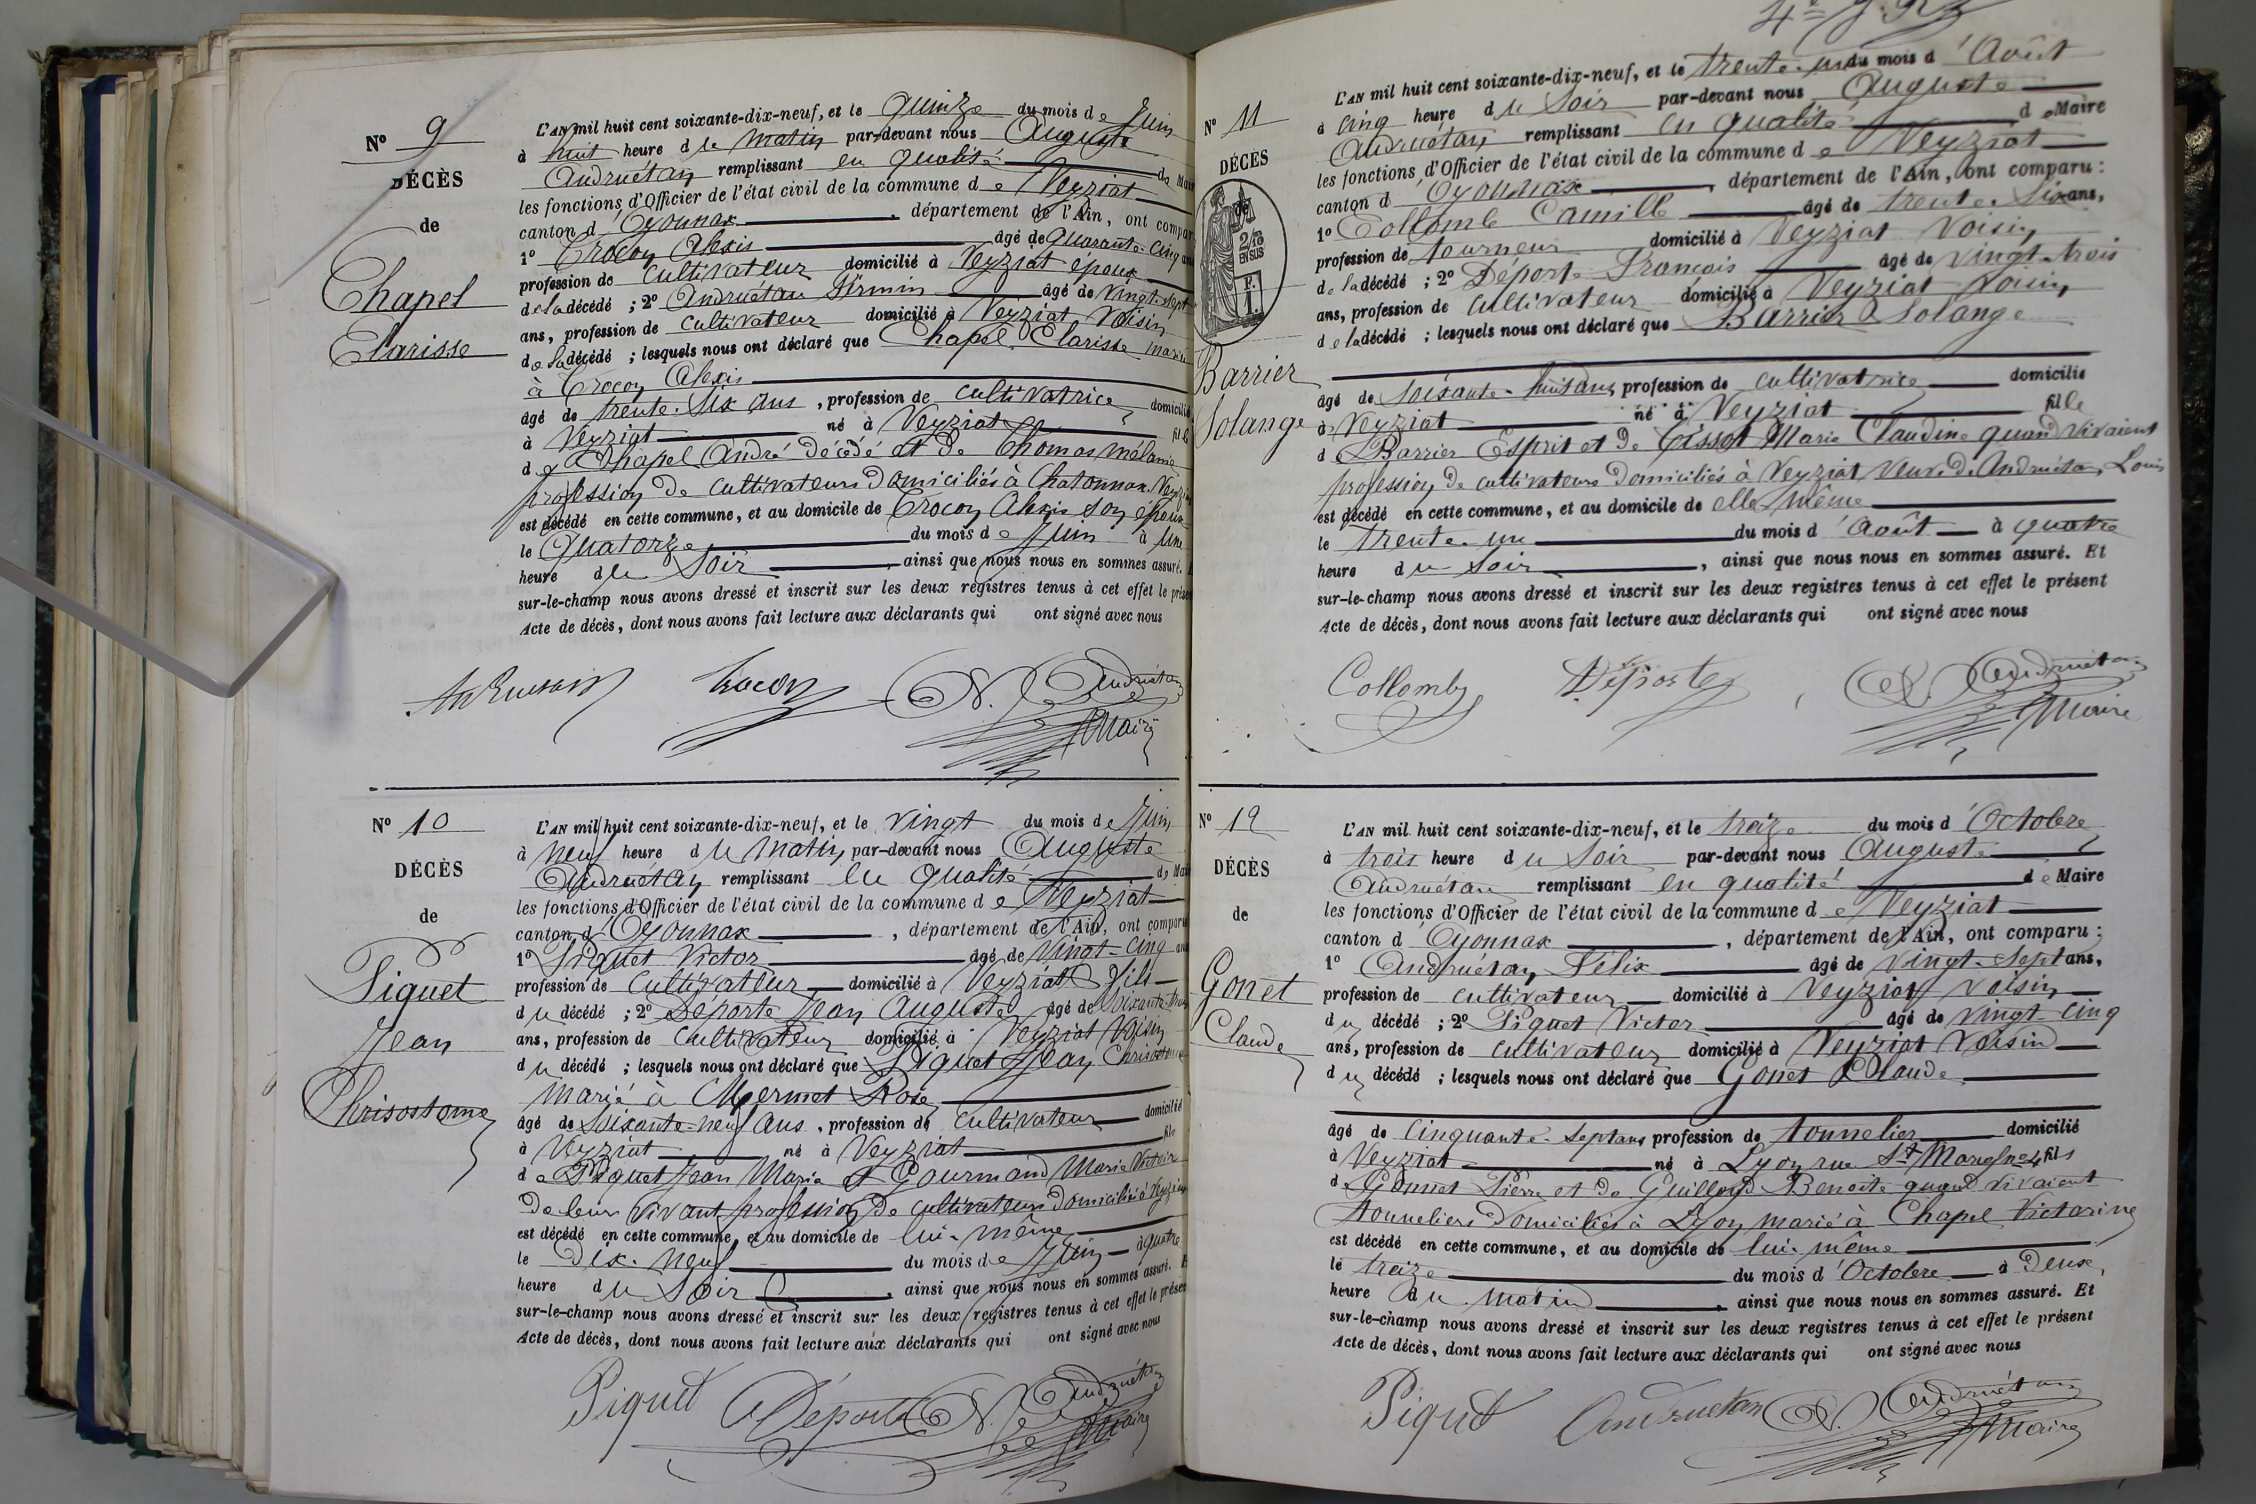 N° 9
DÉCÈS
de
Chapel
Clarisse
L'AN mil huit cent soixante-dix-neuf, et le quinze du mois de Juin
à huit heure du matin par-devant nous Auguste
Andruétan remplissant en qualité de Mai
les fonctions d'Officier de l'état civil de la commune de Veyziat
canton d'Oyonnax, département de l'Ain, ont compar
1° Crocon Alexis âgé de quarante-cinq ans
profession de cultivateur domicilié à Veyziat époux
de la décédé ; 2° Andruétan Firmin âgé de vingt-sept
ans, profession de cultivateur domicilié à Veyziat Voisin
de la décédé ; lesquels nous ont déclaré que Chapel Clarisse marié
à Crocon Alexis
âgé de trente-six ans, profession de cultivatrice domicilié
à Veyziat né à Veyziat fille
de Chapel André décédé et de Thomas mélanie
profession de cultivateurs domiciliés à Chatonnax Veyzi
est décédé en cette commune, et au domicile de Crocon Alexis son époux
le Quatorze du mois de Juin à une
heure du Soir, ainsi que nous nous en sommes assuré.
sur-le-champ nous avons dressé et inscrit sur les deux registres tenus à cet effet le prése
Acte de décès, dont nous avons fait lecture aux déclarants qui ont signé avec nous
Crocon Andruétan
Maire
N° 10
DÉCÈS
de
Piquet
Jean
Chrisostome
L'AN mil huit cent soixante-dix-neuf, et le vingt du mois de Juin
à neuf heure du matin par-devant nous Auguste
Andruétan remplissant en qualité de Mai
les fonctions d'Officier de l'état civil de la commune de Veyziat
canton d'Oyonnax, département de l'Ain, ont comparu
1° Piquet Victor âgé de vingt-cinq ans
profession de cultivateur domicilié à Veyziat Fils
du décédé ; 2° Déporte Jean Auguste âgé de Soixante
ans, profession de cultivateur domicilié à Veyziat Voisin
du décédé ; lesquels nous ont déclaré que Piquet Jean Chrisostome
marié à Mermet Rose
âgé de Soixante-neuf ans, profession de cultivateur domicilié
à Veyziat né à Veyziat fils
de Piquet Jean Marie et Gourmand Marie Victoire
de leur vivant profession de cultivateurs domiciliés à Veyziat
est décédé en cette commune, et au domicile de lui-même
le Dix-neuf du mois de Juin à quatre
heure du Soir, ainsi que nous nous en sommes assuré. E
sur-le-champ nous avons dressé et inscrit sur les deux registres tenus à cet effet le présen
Acte de décès, dont nous avons fait lecture aux déclarants qui ont signé avec nous
Piquet Déporte Andruétan
Maire
N° 11
DÉCÈS
de
2/10
EN SUS
F.
1.
Barrier
Solange
L'AN mil huit cent soixante-dix-neuf, et le trente-un du mois d'Août
à cinq heure du Soir par-devant nous Auguste
Andruétan remplissant en qualité de Maire
les fonctions d'Officier de l'état civil de la commune de Veyziat
canton d'Oyonnax, département de l'Ain, ont comparu :
1° Collomb Camille âgé de trente-six ans,
profession de tourneur domicilié à Veyziat Voisin
de la décédé ; 2° Déporte François âgé de vingt-trois
ans, profession de cultivateur domicilié à Veyziat Voisin
de la décédé ; lesquels nous ont déclaré que Barrier Solange
âgé de soixante-huit ans, profession de cultivatrice domicilié
à Veyziat né à Veyziat fille
de Barrier Esprit et de Tissot Marie Claudine quand vivaient
profession de cultivateurs domiciliés à Veyziat veuve de Andruétan Louis
est décédé en cette commune, et au domicile de elle-même
le trente-un du mois d'Août à quatre
heure du Soir, ainsi que nous nous en sommes assuré. Et
sur-le-champ nous avons dressé et inscrit sur les deux registres tenus à cet effet le présent
Acte de décès, dont nous avons fait lecture aux déclarants qui ont signé avec nous
Collomb Déporte Andruétan
Maire
N° 12
DÉCÈS
de
Gonet
Claude
L'AN mil huit cent soixante-dix-neuf, et le treize du mois d'Octobre
à trois heure du Soir par-devant nous Auguste
Andruétan remplissant en qualité de Maire
les fonctions d'Officier de l'état civil de la commune de Veyziat
canton d'Oyonnax, département de l'Ain, ont comparu :
1° Andruétan Félix âgé de vingt-sept ans,
profession de cultivateur domicilié à Veyziat Voisin
du décédé ; 2° Piquet Victor âgé de vingt-cinq
ans, profession de cultivateur domicilié à Veyziat Voisin
du décédé ; lesquels nous ont déclaré que Gonet Claude
âgé de cinquante-sept ans profession de tonnelier domicilié
à Veyziat né à Lyon rue St fils
de Gonnet Pierre et de Guilloud Benoite quand vivaient
tonneliers domiciliés à Lyon marié à Chapel Victorine
est décédé en cette commune, et au domicile de lui-même
le treize du mois d'Octobre à Deux
heure du matin, ainsi que nous nous en sommes assuré. Et
sur-le-champ nous avons dressé et inscrit sur les deux registres tenus à cet effet le présent
Acte de décès, dont nous avons fait lecture aux déclarants qui ont signé avec nous
Piquet Andruétan Andruétan
Maire